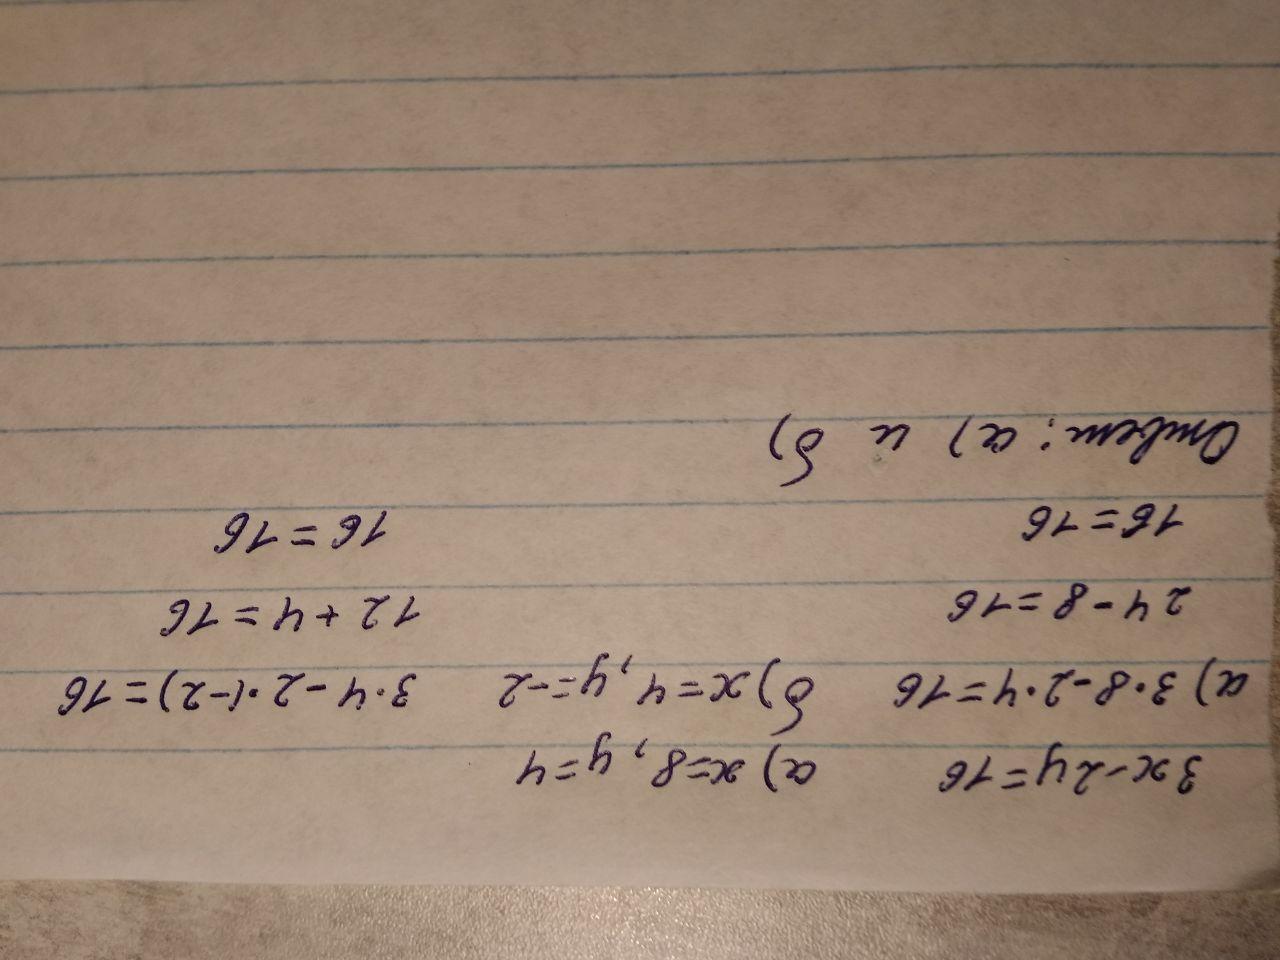 3x-2y=16 а) x=8, y=4
а) 3·8-2·4=16 б) x=4, y=-2 3·4-2·(-2)=16
24-8=16 12+4=16
16=16 16=16
Ответ: а) и б)